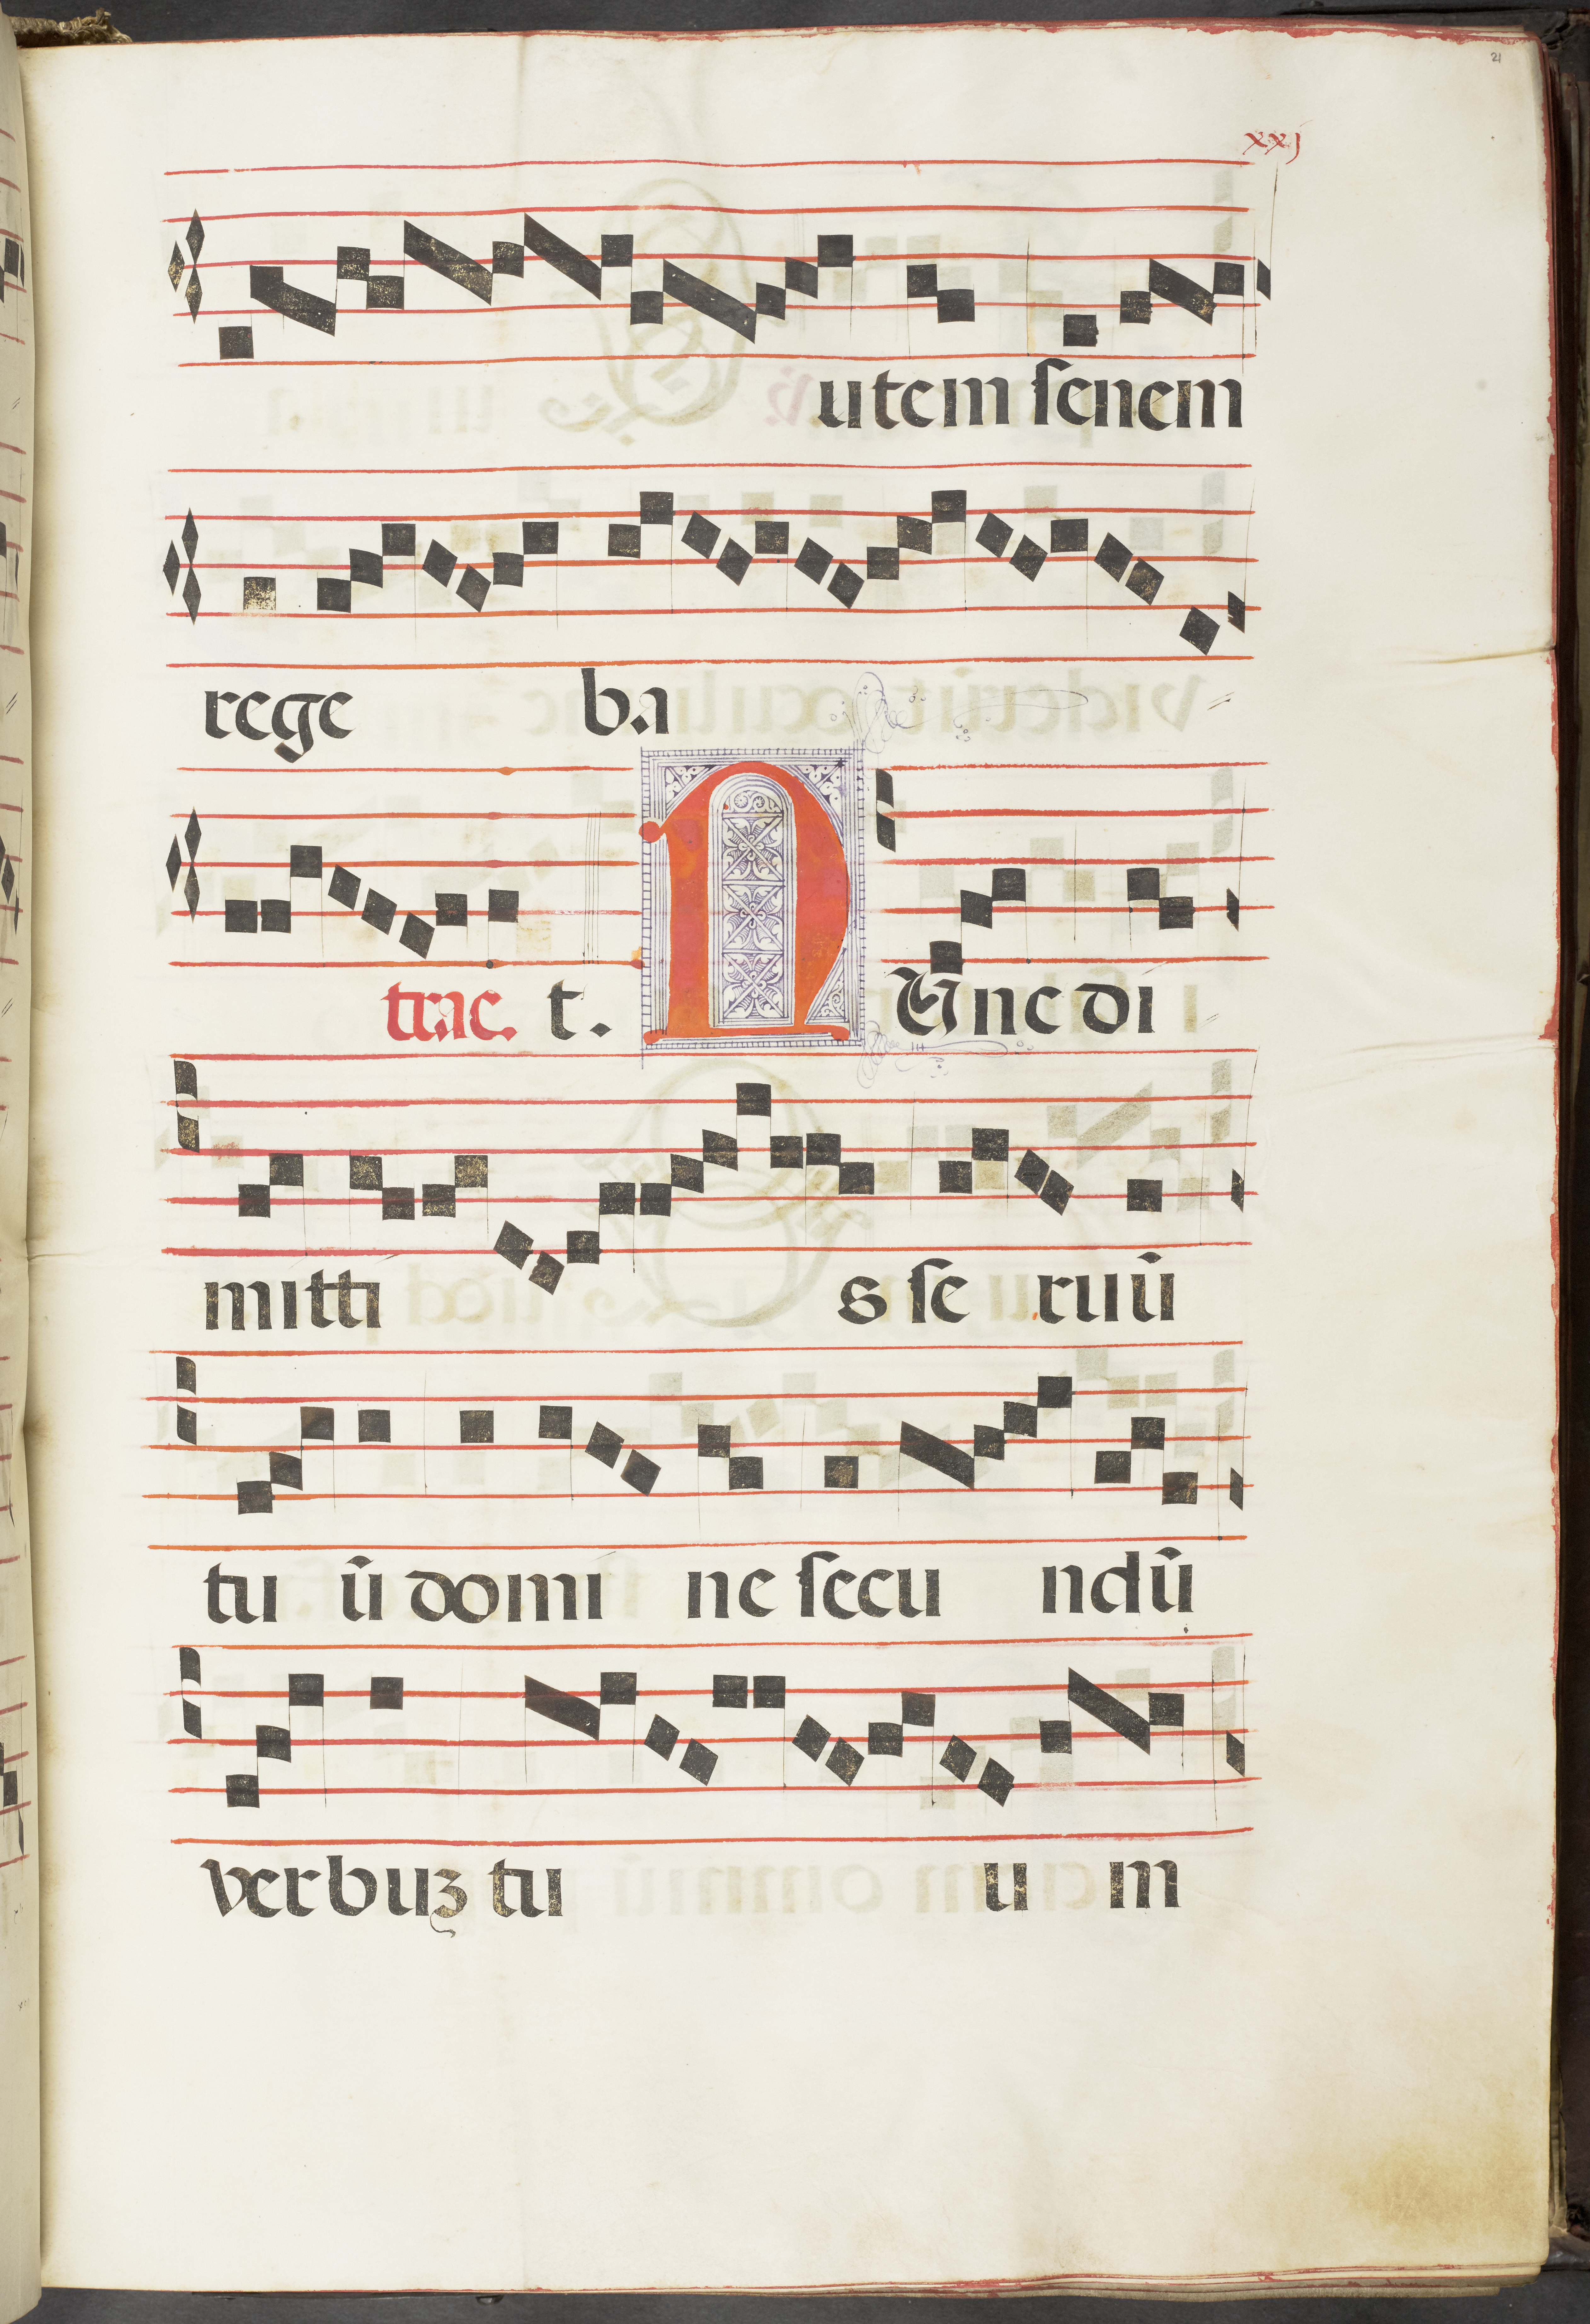 21
xxj
utem senem
rege ba
trac. t. NUnc di
mitti s se ruū
tu ū domi ne secu ndū
verbuꝫ tu u m